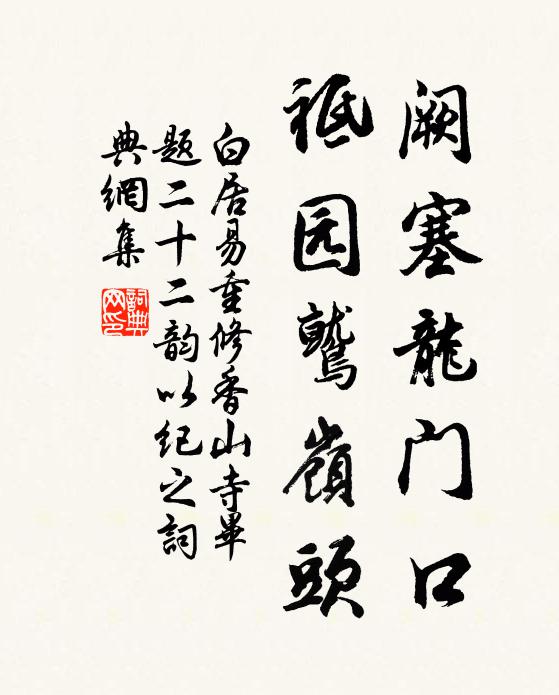 阙塞龍门口
祗园鷲嶺頭
白居易重修香山寺畢
题二十二韵以纪之詞
典網集
詞典网印